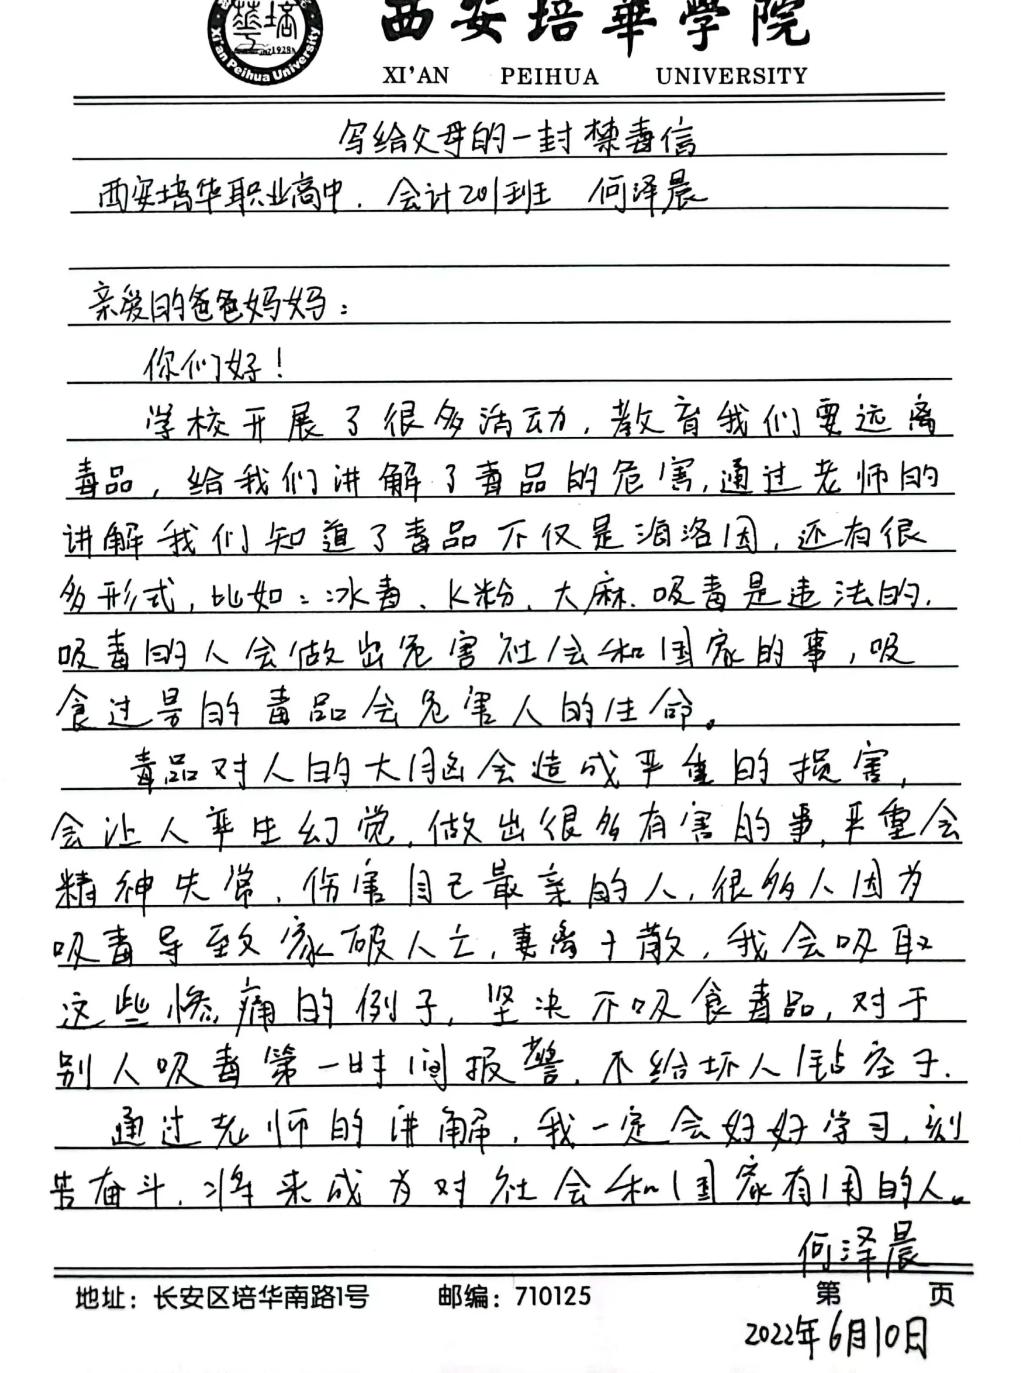 西安培華學院
Xi'an Peihua University
1928
XI'AN PEIHUA UNIVERSITY
写给父母的一封禁毒信
西安培华职业高中．会计201班 何泽晨
亲爱的爸爸妈妈：
你们好！
学校开展了很多活动，教育我们要远离
毒品，给我们讲解了毒品的危害，通过老师的
讲解我们知道了毒品不仅是海洛因，还有很
多形式，比如：冰毒、K粉、大麻．吸毒是违法的，
吸毒的人会做出危害社会和国家的事，吸
食过量的毒品会危害人的生命。
毒品对人的大脑会造成严重的损害，
会让人产生幻觉，做出很多有害的事，严重会
精神失常，伤害自己最亲的人，很多人因为
吸毒导致家破人亡，妻离子散，我会吸取
这些惨痛的例子，坚决不吸食毒品，对于
别人吸毒第一时间报警，不给坏人钻空子．
通过老师的讲解，我一定会好好学习，刻
苦奋斗，将来成为对社会和国家有用的人。
何泽晨
地址：长安区培华南路1号 邮编：710125 第 页
2022年6月10日